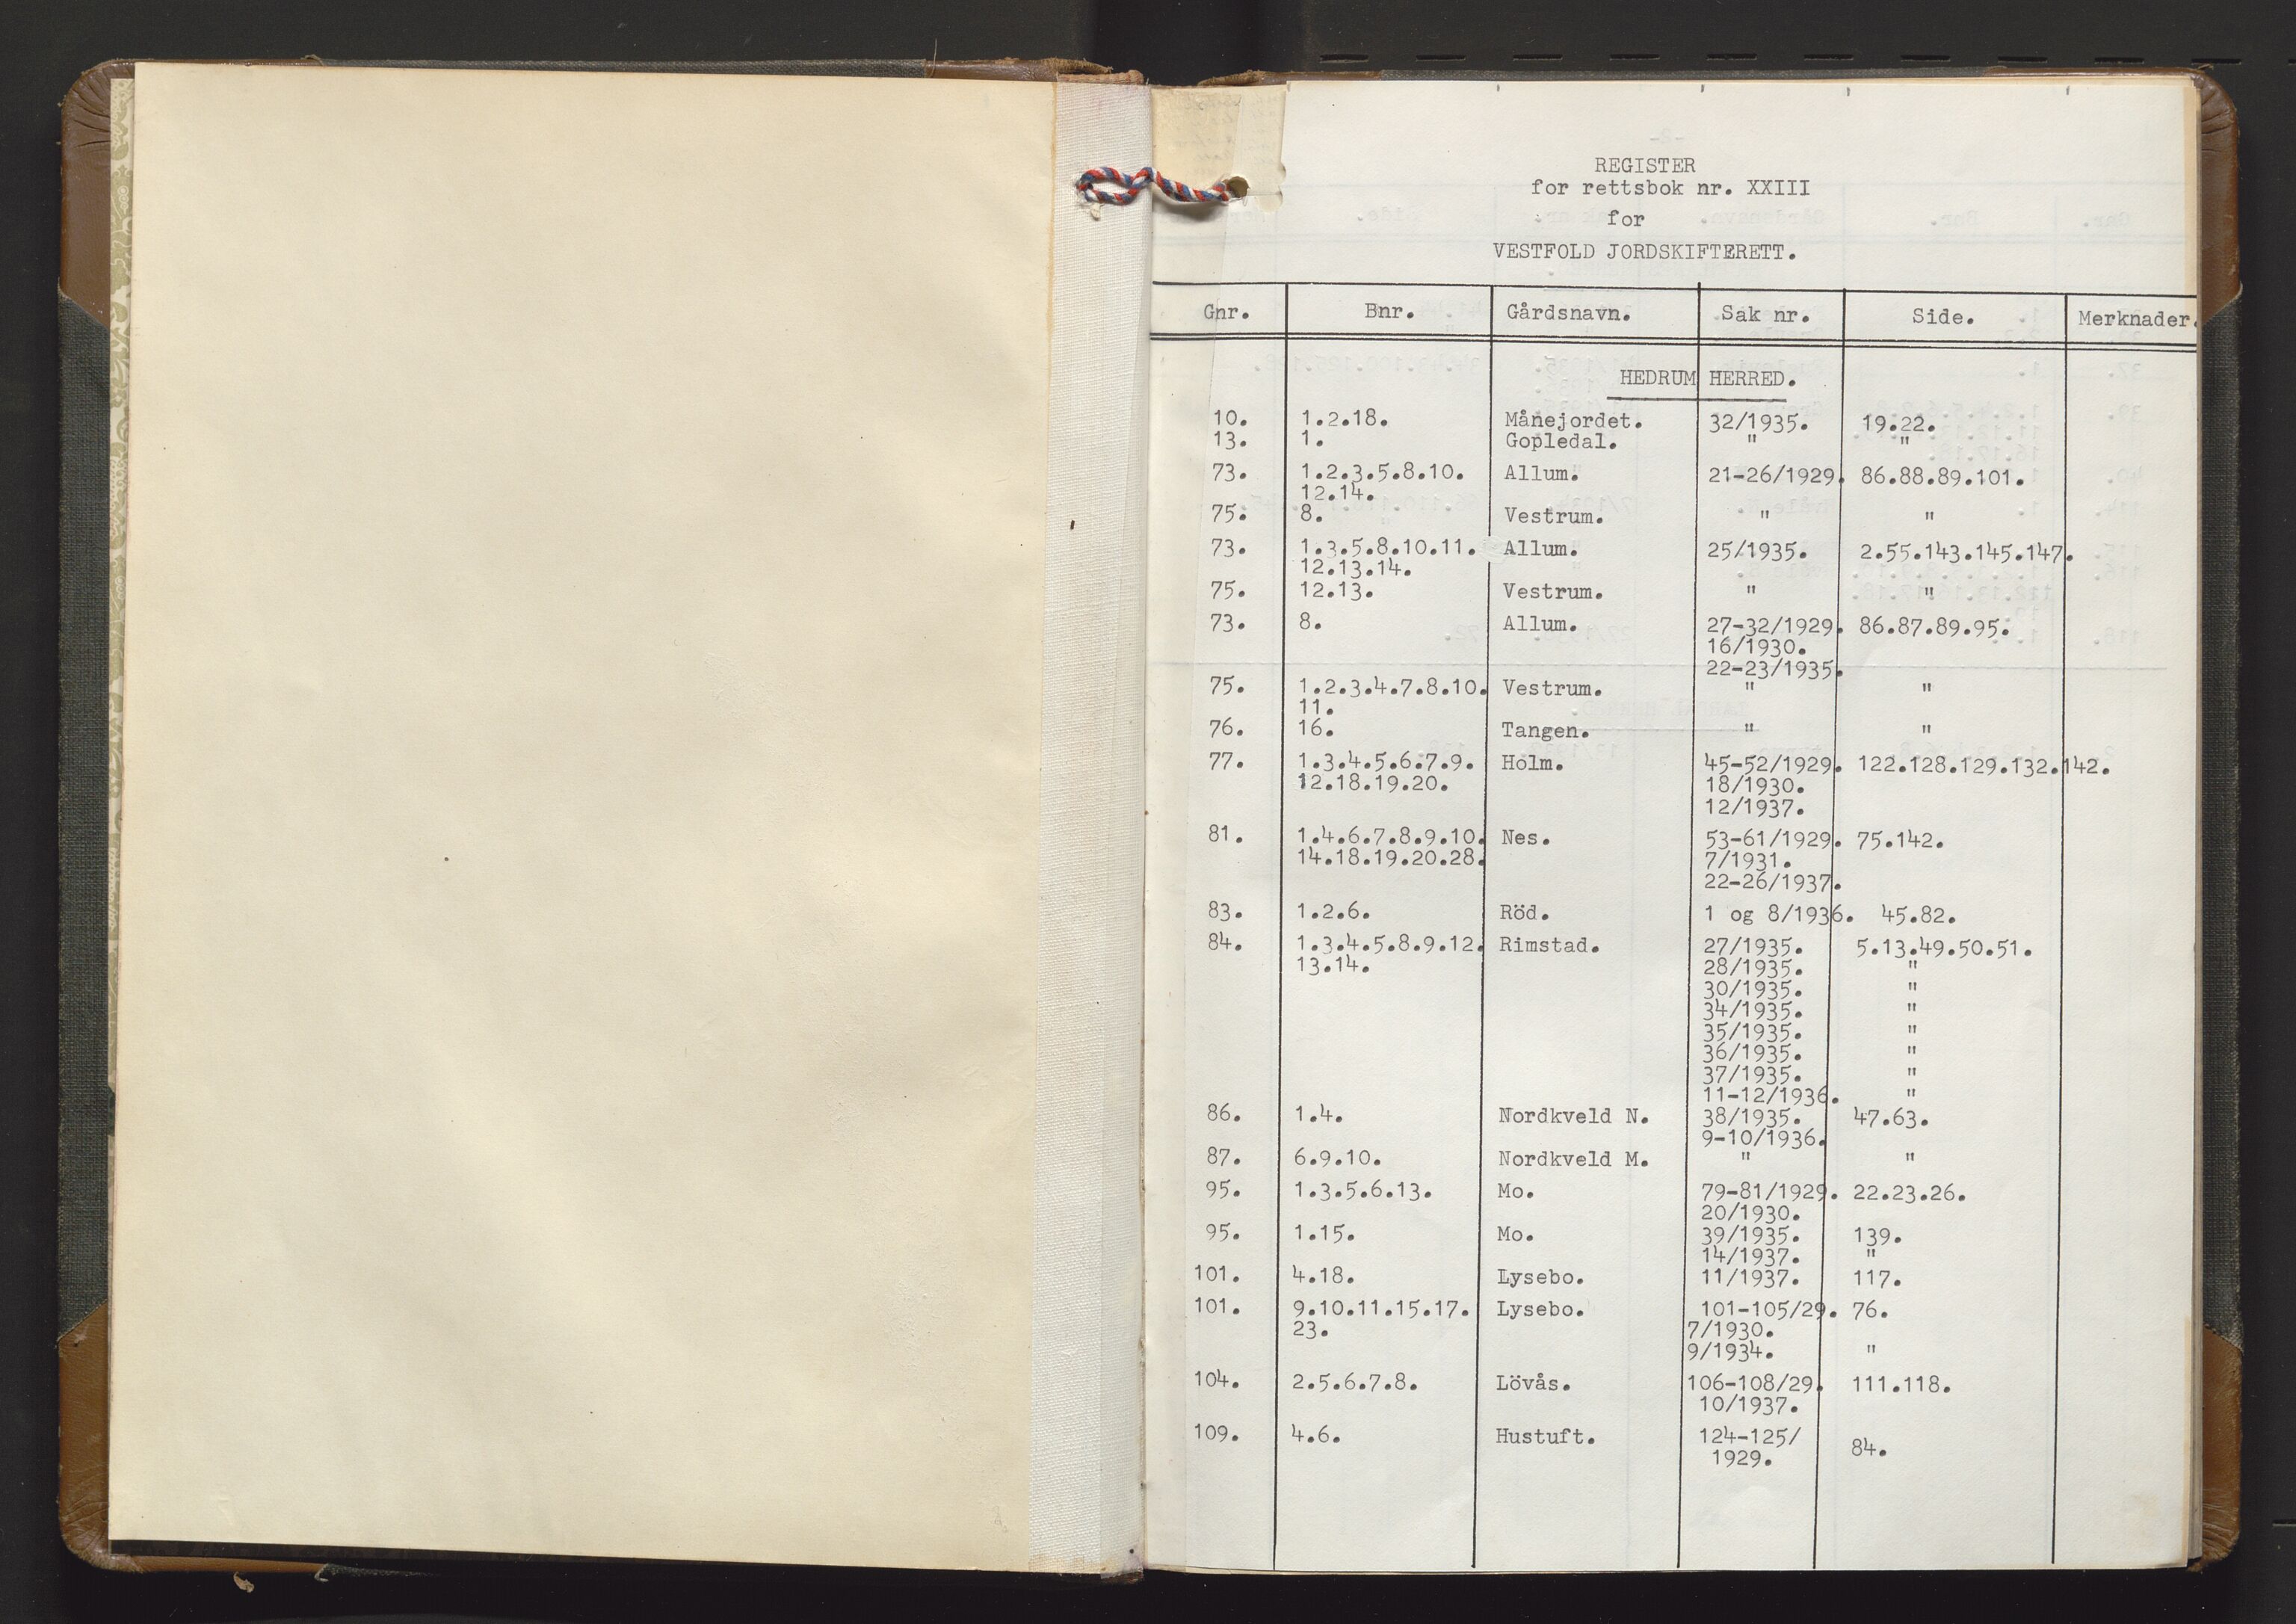 REGISTER
for rettsbok nr. XXIII
for
VESTFOLD JORDSKIFTERETT.
Gnr. Bnr. Gårdsnavn. Sak nr. Side. Merknader.
HEDRUM HERRED.
10. 1.2.18. Månejordet. 32/1935. 19.22.
13. 1. Gopledal. " "
73. 1.2.3.5.8.10. Allum. 21-26/1929. 86.88.89.101.
12.14.
75. 8. Vestrum. " "
73. 1.3.5.8.10.11. Allum. 25/1935. 2.55.143.145.147.
12.13.14.
75. 12.13. Vestrum. " "
73. 8. Allum. 27-32/1929. 86.87.89.95.
16/1930.
22-23/1935.
75. 1.2.3.4.7.8.10. Vestrum. " "
11.
76. 16. Tangen. " "
77. 1.3.4.5.6.7.9. Holm. 45-52/1929. 122.128.129.132.142.
12.18.19.20. 18/1930.
12/1937.
81. 1.4.6.7.8.9.10. Nes. 53-61/1929. 75.142.
14.18.19.20.28. 7/1931.
22-26/1937.
83. 1.2.6. Röd. 1 og 8/1936. 45.82.
84. 1.3.4.5.8.9.12. Rimstad. 27/1935. 5.13.49.50.51.
13.14. 28/1935. "
30/1935. "
34/1935. "
35/1935. "
36/1935. "
37/1935. "
11-12/1936. "
86. 1.4. Nordkveld N. 38/1935. 47.63.
9-10/1936.
87. 6.9.10. Nordkveld M. " "
95. 1.3.5.6.13. Mo. 79-81/1929. 22.23.26.
20/1930.
95. 1.15. Mo. 39/1935. 139.
14/1937. "
101. 4.18. Lysebo. 11/1937. 117.
101. 9.10.11.15.17. Lysebo. 101-105/29. 76.
23. 7/1930.
9/1934. "
104. 2.5.6.7.8. Lövås. 106-108/29. 111.118.
10/1937.
109. 4.6. Hustuft. 124-125/
1929. 84.